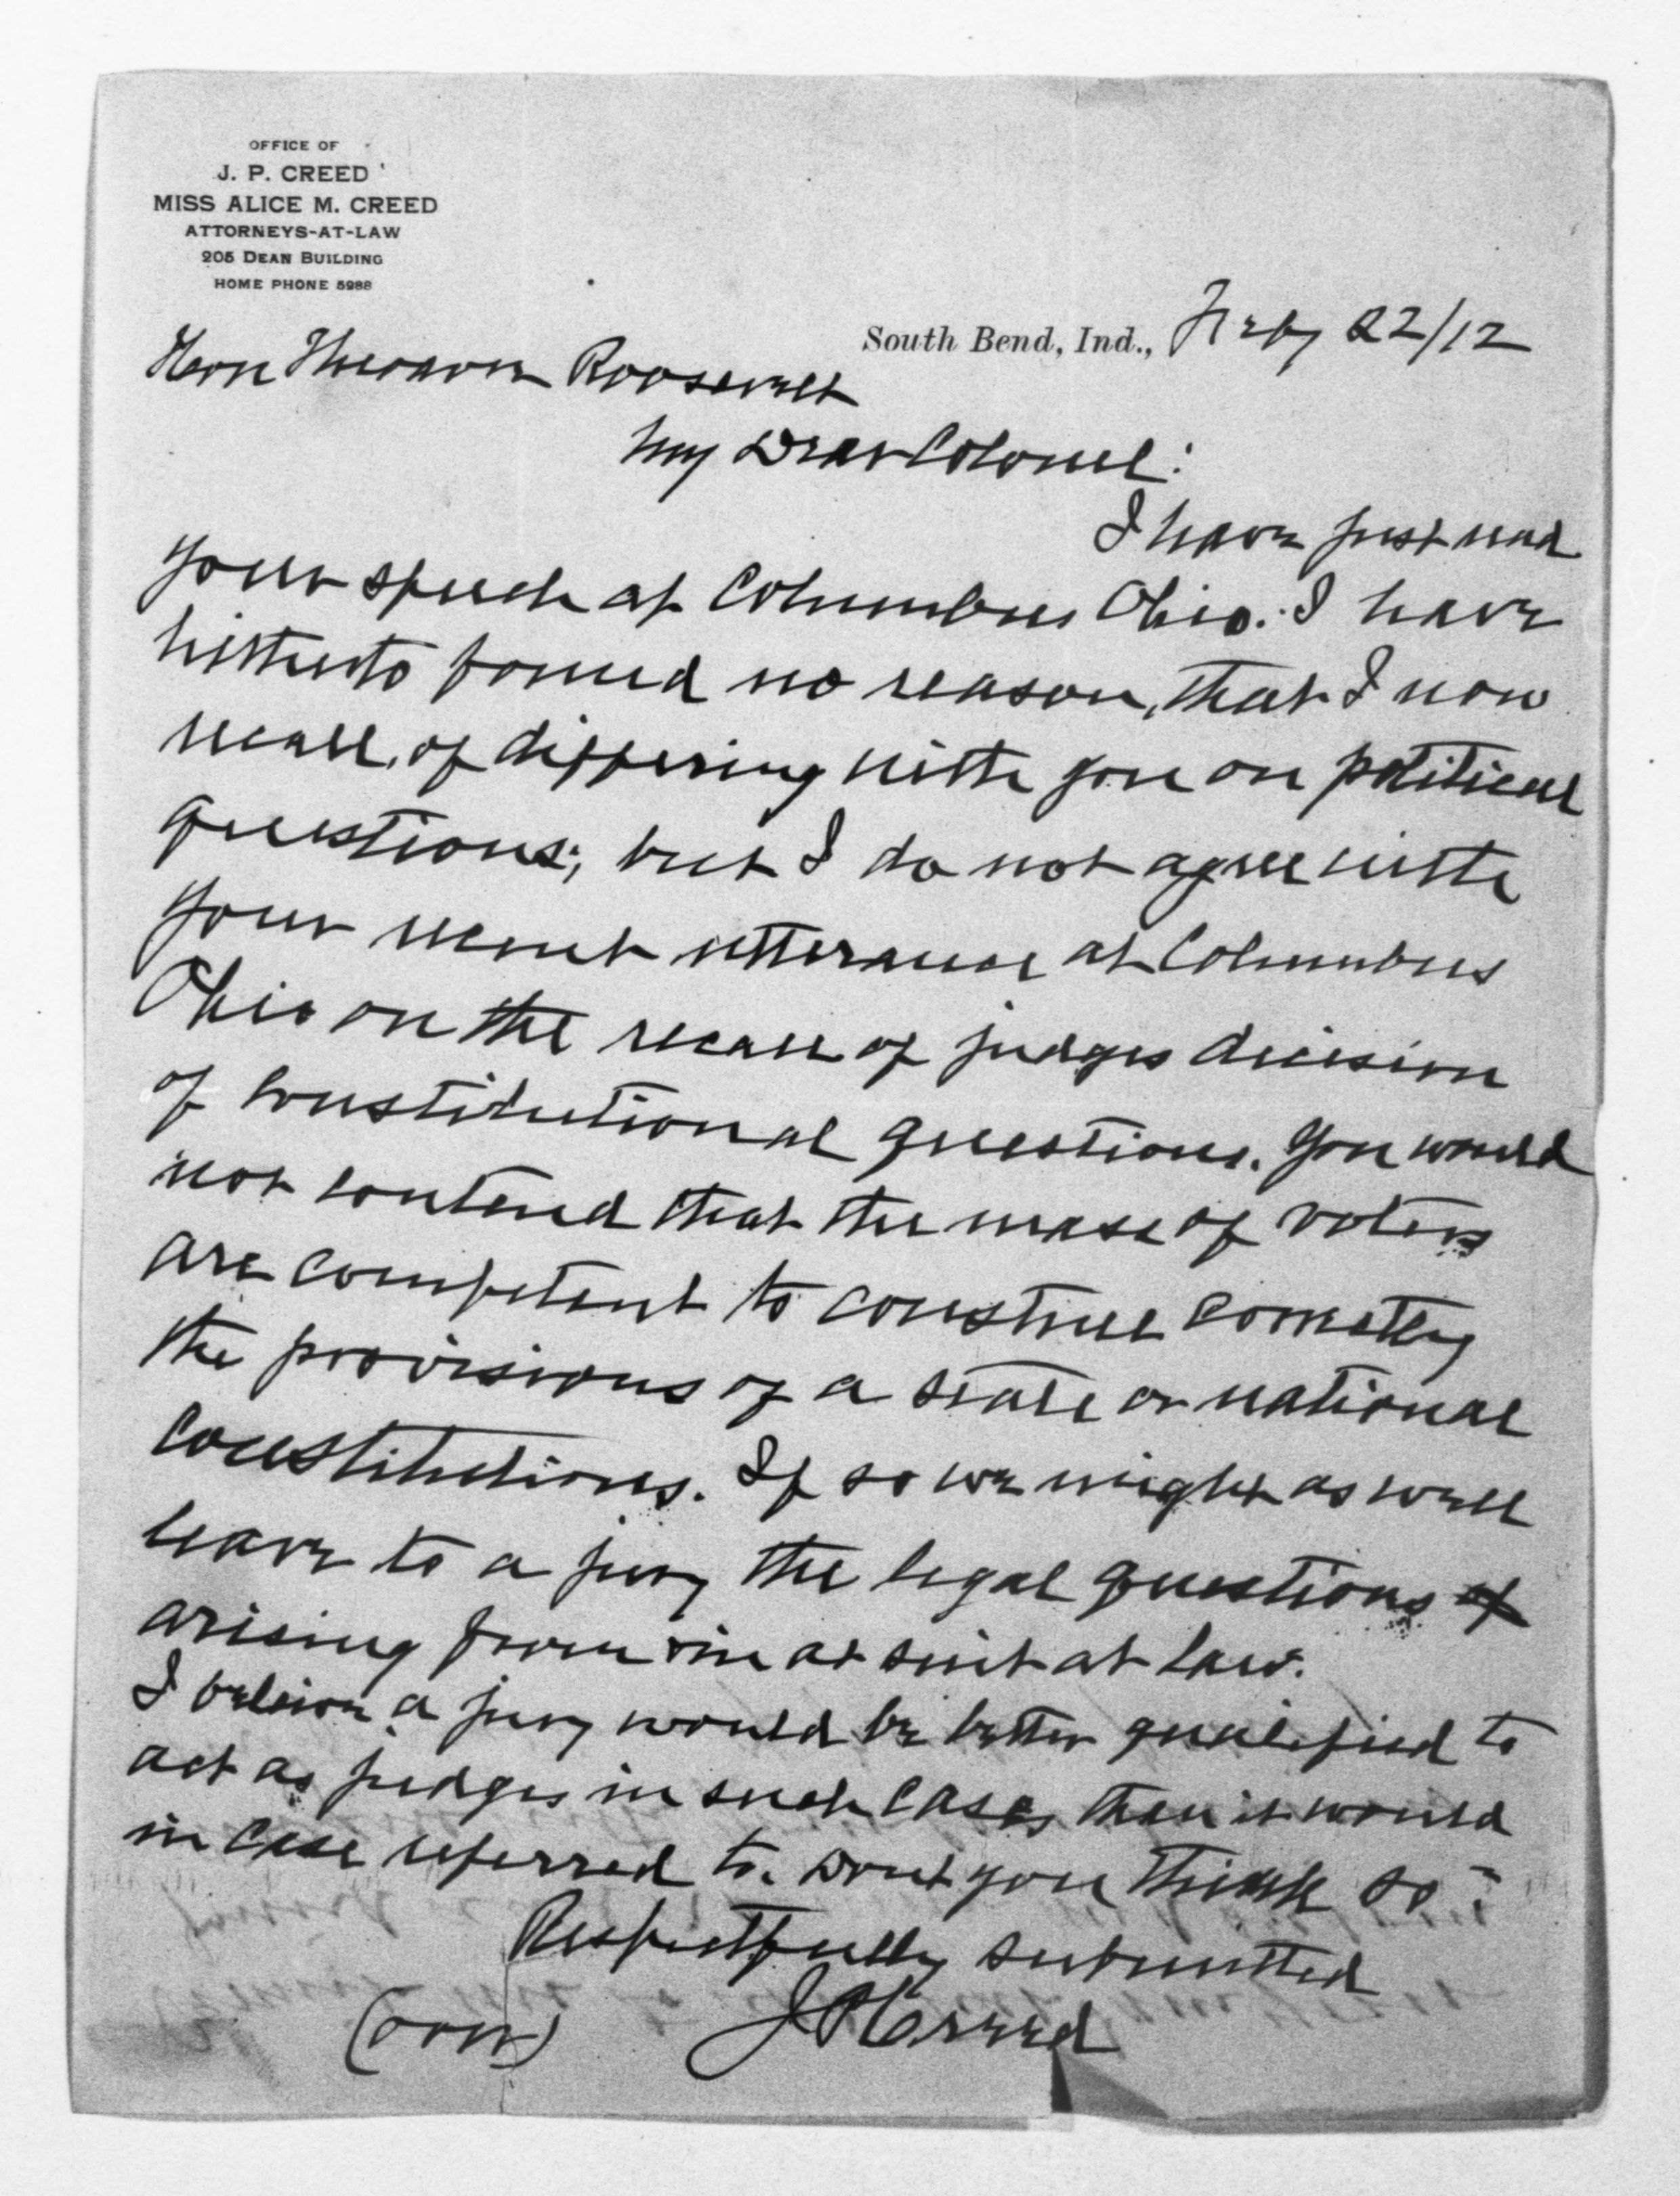 OFFICE OF
J. P. CREED
MISS ALICE M. CREED
ATTORNEYS-AT-LAW
205 DEAN BUILDING
HOME PHONE 5988
South Bend, Ind., Feby 22/12
Hon Theodore Roosevelt
My Dear Colonel:
I have just read
your speech at Columbus Ohio. I have
hitherto found no reason, that I now
recall, of differing with you on political
questions; but I do not agree with
your recent utterance at Columbus
Ohio on the recall of judges decision
of constitutional questions. You would
not contend that the mass of voters
are competent to construe correctly
the provisions of a state or national
constitutions. If so we might as well
leave to a jury the legal questions of
arising from in a suit at law.
I believe a jury would be better qualified to
act as judges in such cases than it would
in case referred to. Dont you think so?
Respectfully submitted
(over) J P Creed